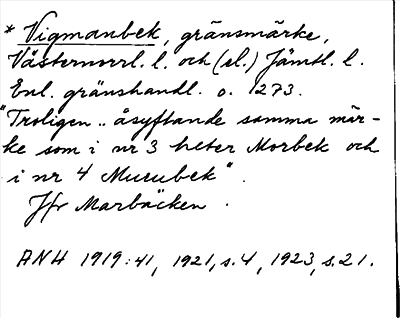 * Vigmanbek, gränsmärke,
Västernorrl. l. och (el.) Jämtl. l.
Enl. gränshandl. o. 1273.
"Troligen .. åsyftande samma mär-
ke som i nr 3 heter Morbek och
i nr 4 Murubek".
Jfr Marbäcken.
ANH 1919:41, 1921, s. 4, 1923, s. 21.